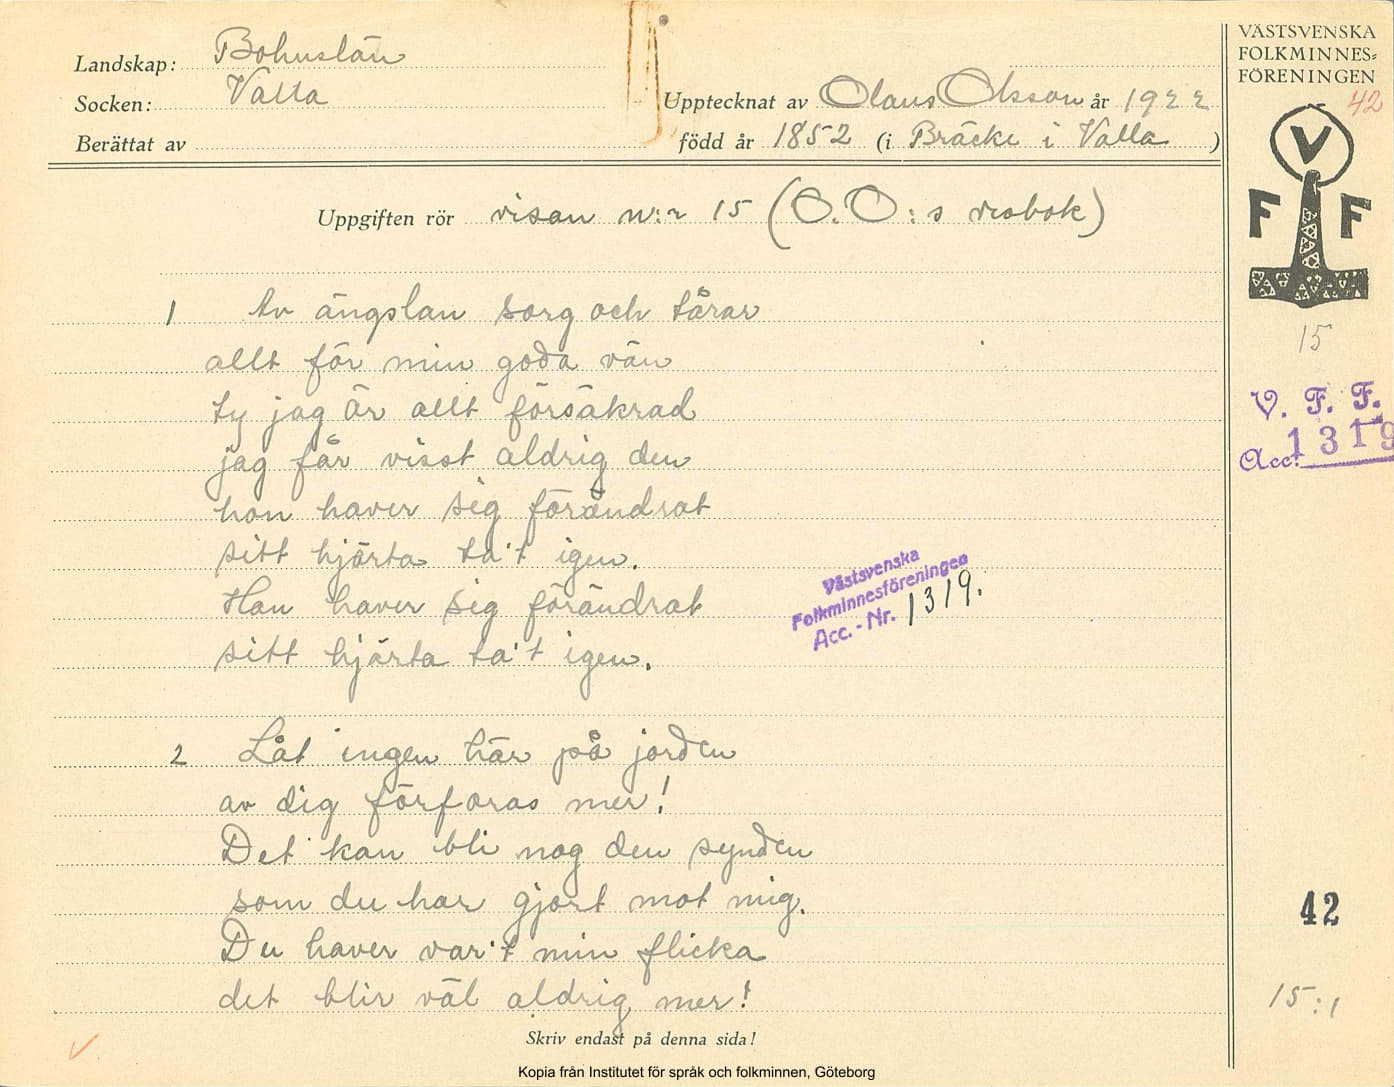 Landskap: Bohuslän
Socken: Valla
Berättat av
Upptecknat av Olaus Olsson år 1922
född år 1852 (i Bräcke i Valla )
VÄSTSVENSKA
FOLKMINNES-
FÖRENINGEN
42
V
F F
Uppgiften rör visan n:r 15 (O.O:s visbok)
1 Av ängslan sorg och tårar
allt för min goda vän
ty jag är allt försäkrad
jag får visst aldrig den
hon haver sig förändrat
sitt hjärta ta't igen.
Han haver sig förändrat
sitt hjärta ta't igen.
15
V. F. F.
Acc. 1319
Västsvenska
Folkminnesföreningen
Acc.-Nr. 1319.
2 Låt ingen här på jorden
av dig förforas mer!
Det kan bli nog den synden
som du har gjort mot mig.
Du haver var't min flicka
det blir väl aldrig mer!
42
15:1
Skriv endast på denna sida!
Kopia från Institutet för språk och folkminnen, Göteborg